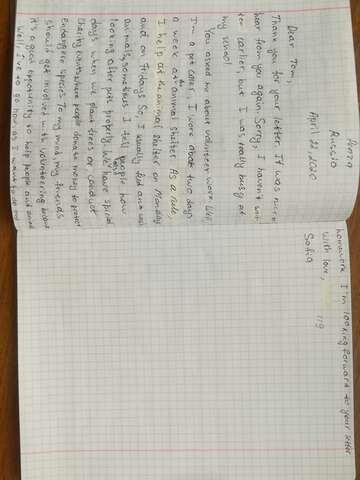 Penza
Russia
April 22, 2020
Dear Tom,
Thank you for your letter. It was nice
hear from you again. Sorry, I haven't writ-
ten earlier, but I was really busy at
my school.
You asked me about volunteer work. Well,
I'm a pet carer. I work about two days
a week at the animal shelter. As a rule,
I help at the animal shelter on Monday
and on Fridays. So, I usually feed and
animals, sometimes I tell people how
looking after pets properly. We have special
days when we plant trees or conduct
charity events where people donate money to protect
endangere species. To my mind, my friends
should get involved with volunteering
it's a good opportunity to help people and
Well, I've to go now as I want to do my
homework. I'm looking forward to your letter
With love,
Sofia
119